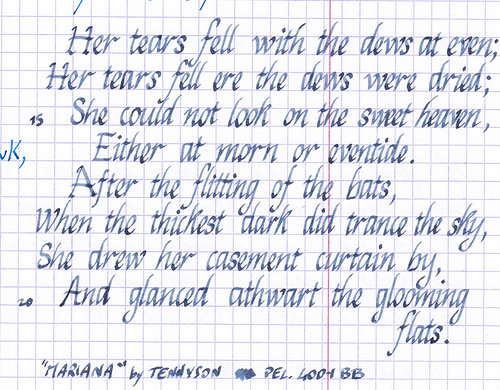 Her tears fell with the dews at even;
Her tears fell ere the dews were dried;
15 She could not look on the sweet heaven,
Either at morn or eventide.
After the flitting of the bats,
When the thickest dark did trance the sky,
She drew her casement curtain by,
20 And glanced athwart the glooming
flats.
"MARIANA" by TENNYSON PEL. 4001 BB